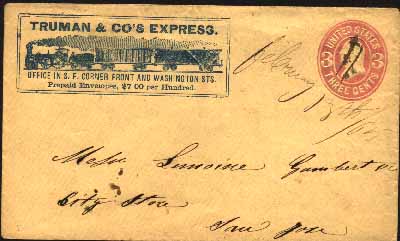 TRUMAN & CO'S EXPRESS.
OFFICE IN S. F. CORNER FRONT AND WASHINGTON STS.
Prepaid Envelopes, $7 00 per Hundred.
UNITED STATES
3 3
THREE CENTS
February 13th
Lemoine Gambert
City Store
San Jose